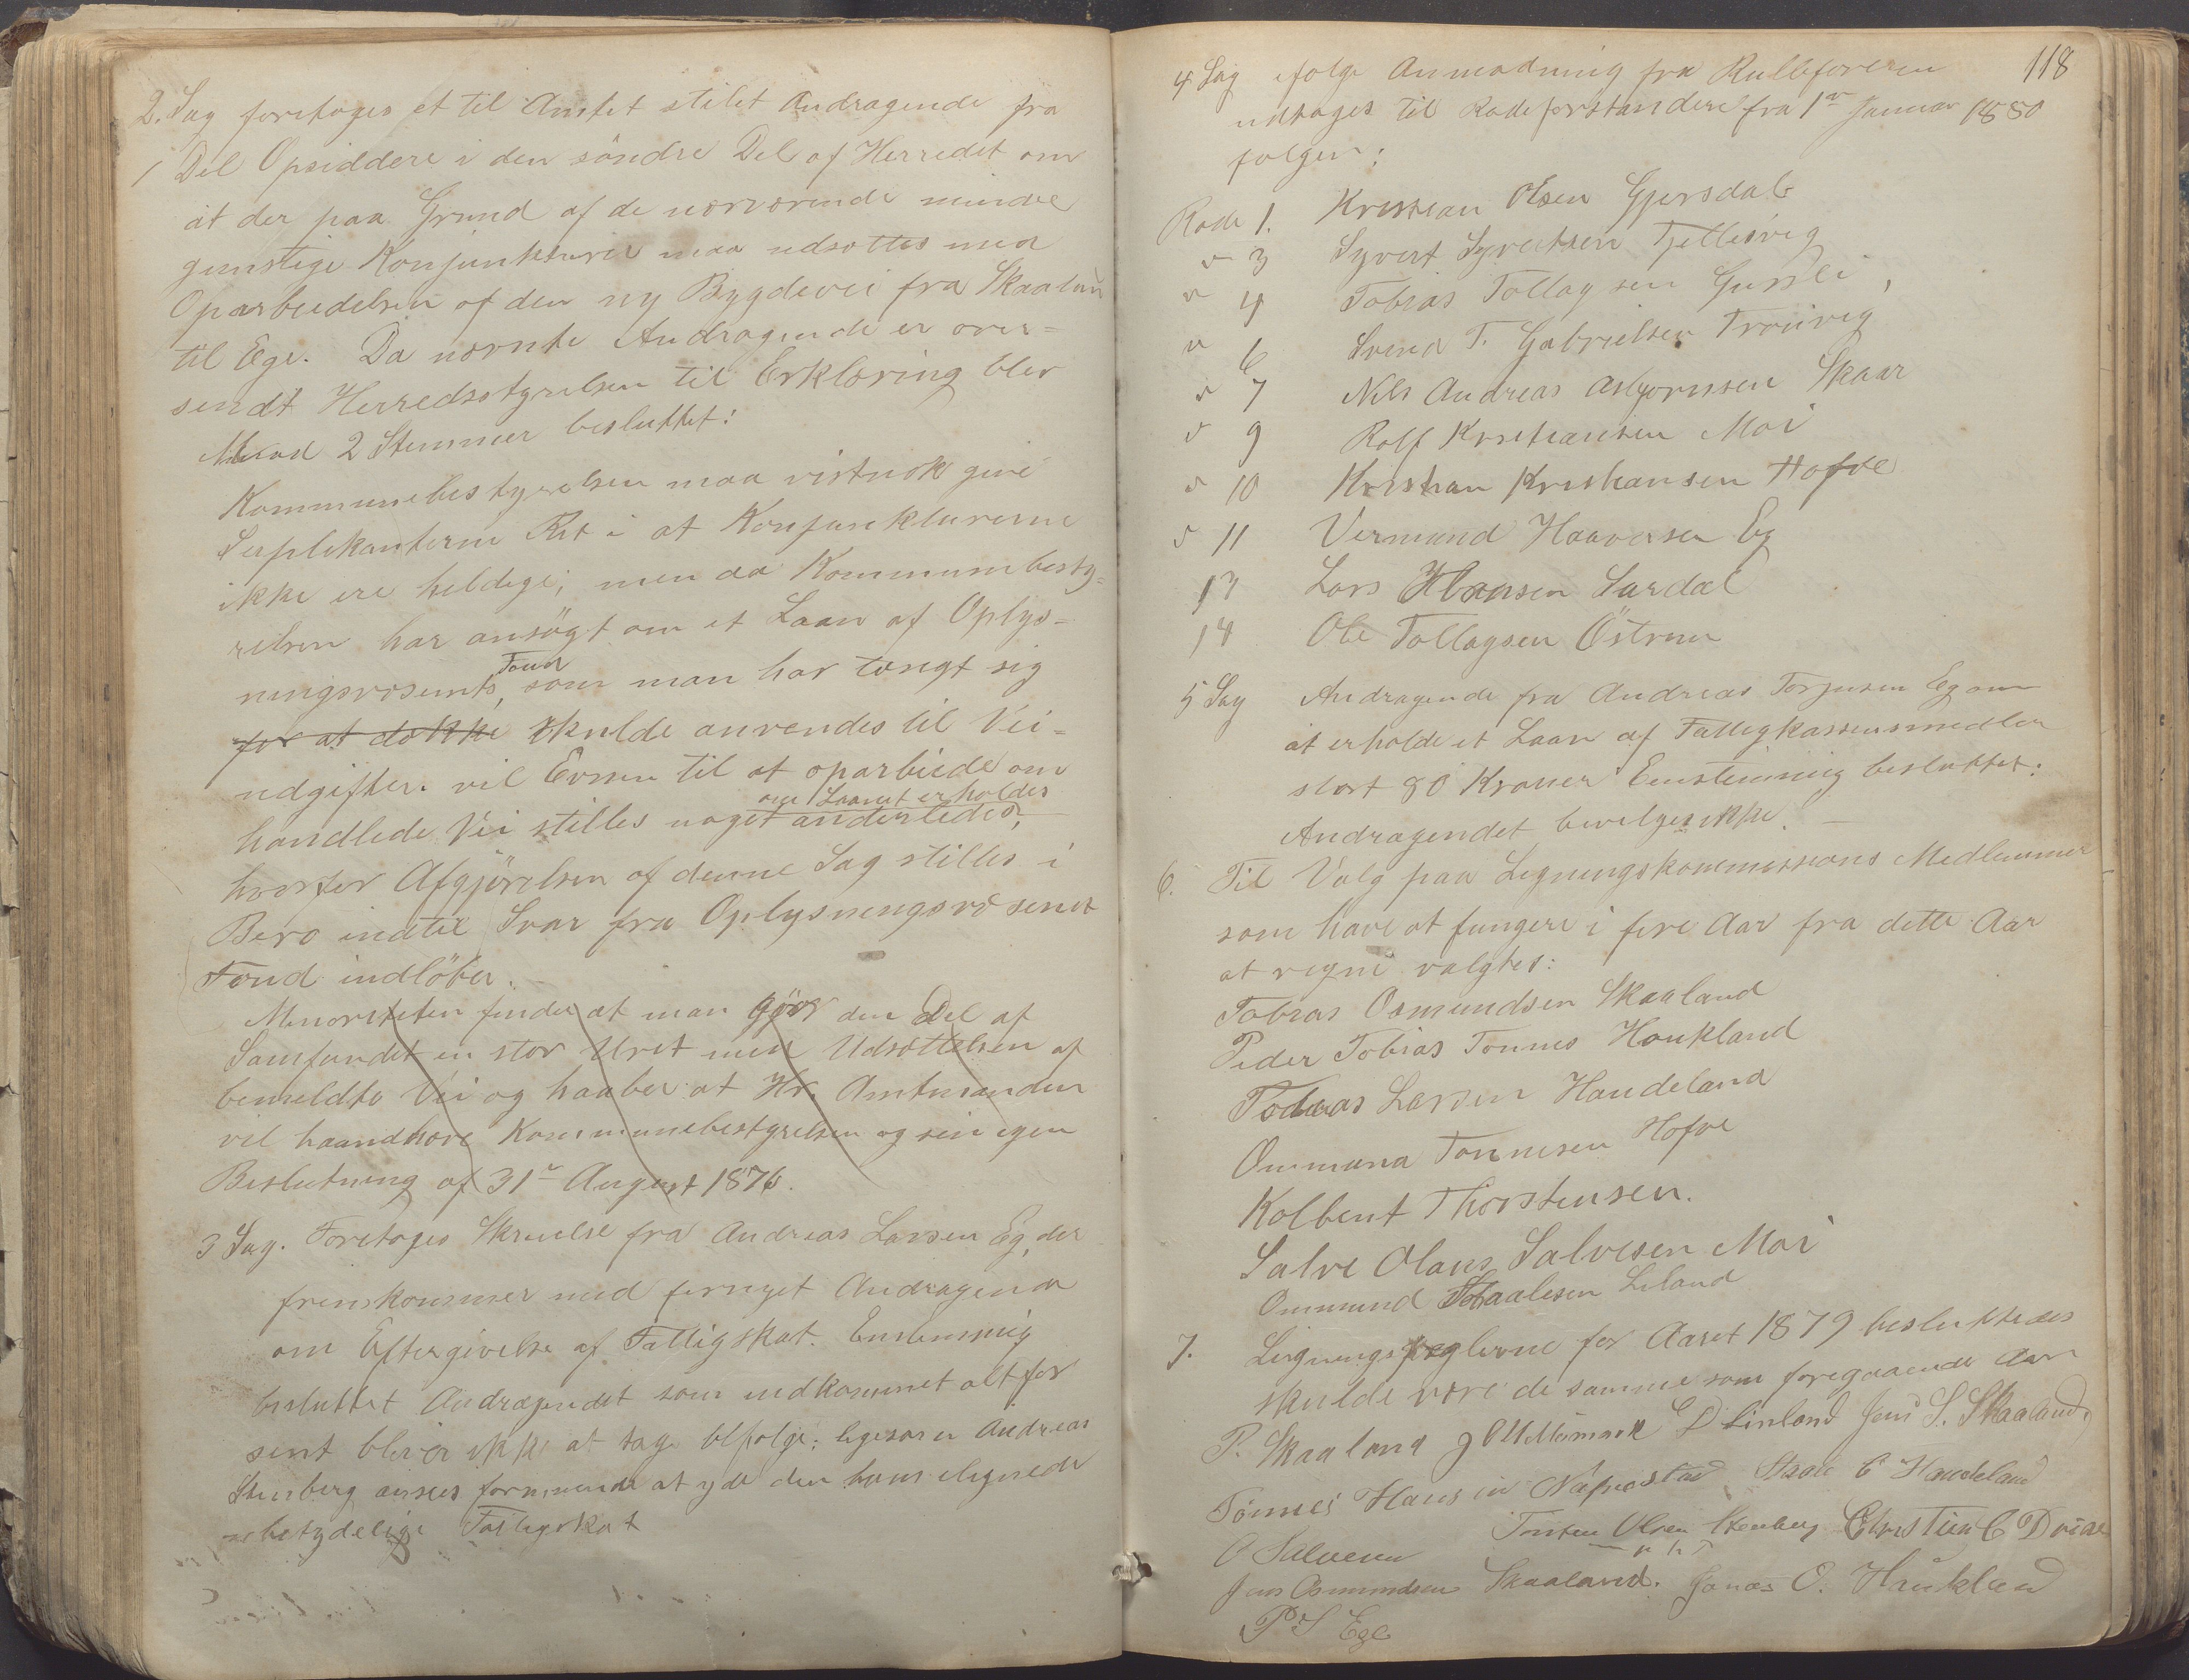 2. Sag foretoges et til Amtet stilet Andragende fra
1 Del Opsiddere i den söndre Del af Herredet om
at der paa Grund af de nærværende mindre
gunstige Konjunkturer maa udsættes med
Oparbeidelsen af den ny Bygdevei fra Skaaland
til Ege. Da nævnte Andragende er over=
sendt Herredsstyrelsen til Erklæring blev
Mod 2 Stemmer besluttet:
Kommunebestyrelsen maa vistnok give
Suplikanterne Ret i at Konjunkturerne
ikke ere heldige; men da Kommunebesty=
relsen har ansögt om et Laan af Oplys=
ningsvæsenets Fond, som man har tængt sig
for at dække skulde anvendes til Vei=
udgifter. vil Evnen til at oparbeide om
handlede Vei stilles noget anderledes, om Laanet erholdes
hvorfor Afgjörelsen af denne Sag stilles i
Bero indtil Svar fra Oplysningsvæsenets
Fond indlöber.
Minoriteten finder at man gjör den Del af
Samfundet en stor Uret med Udsættelsen af
bemeldte Vei og haaber at Hr. Amtmanden
vil haandhæve Kommunebestyrelsen og sin egen
Beslutning af 31r August 1876.
3 Sag. Foretoges Skrivelse fra Andreas Larsen Eg, der
fremkommer med fornyet Andragende
om Eftergivelse af Fattigskat. Enstemmig
besluttet Andragendet som indkommet alt for
sent bliver ikke at tage tilfølge; ligesom Andreas
Stenberg ansees formuende at yde den ham ilignede
ubetydelige Fattigskat
118
4 Sag ifølge Anmodning fra Rulleføreren
udtoges til Rodeforstandere fra 1r Januar 1880
følgen:
Rode 1. Kristian Olsen Gyersdal
" 3 Syvert Syvertsen Tjellesvig
" 4 Tobias Tollagsen Gussli,
" 6 Svend T. Gabrielsen Tronvig
" 7 Nils Andreas Asbjørnsen Skaar
" 9 Rolf Kristiansen Moi
" 10 Kristian Kristiansen Hofve
" 11 Vermund Haaversen Eg
13 Lars Hansen Surdal
14 Ole Tollagsen Östrem
5 Sag Andragende fra Andreas Torjusen Eg om
at erholde et Laan af Fattigkassensmidler
stort 80 Kroner Enstemmig besluttet:
Andragendet bevilges ikke. —
6. Til Valg paa Ligningskommissions Medlemmer
som have at fungere i fire Aar fra dette Aar
at regne valgtes:
Tobias Osmundsen Skaaland
Peder Tobias Tønnes Haukland
Tobias Larsen Handeland
Ommund Tønnesen Hofve
Kolbent Thorstensen.
Salve Olaus Salvesen Moi
Ommund Staalesen Leland
7. Ligningsreglerne for Aaret 1879 besluttedes
skulde være de samme som foregaaende Aar
P. Skaaland J Mellemark D Linland Jens S. Skaaland,
Tönnes Hansen Napestad Staale C Handeland
O Salvesen Torsten Olsen Stenberg Christian C Drivdal
Jens Osmundsen Skaaland. Jonas O. Haukland
P S Ege